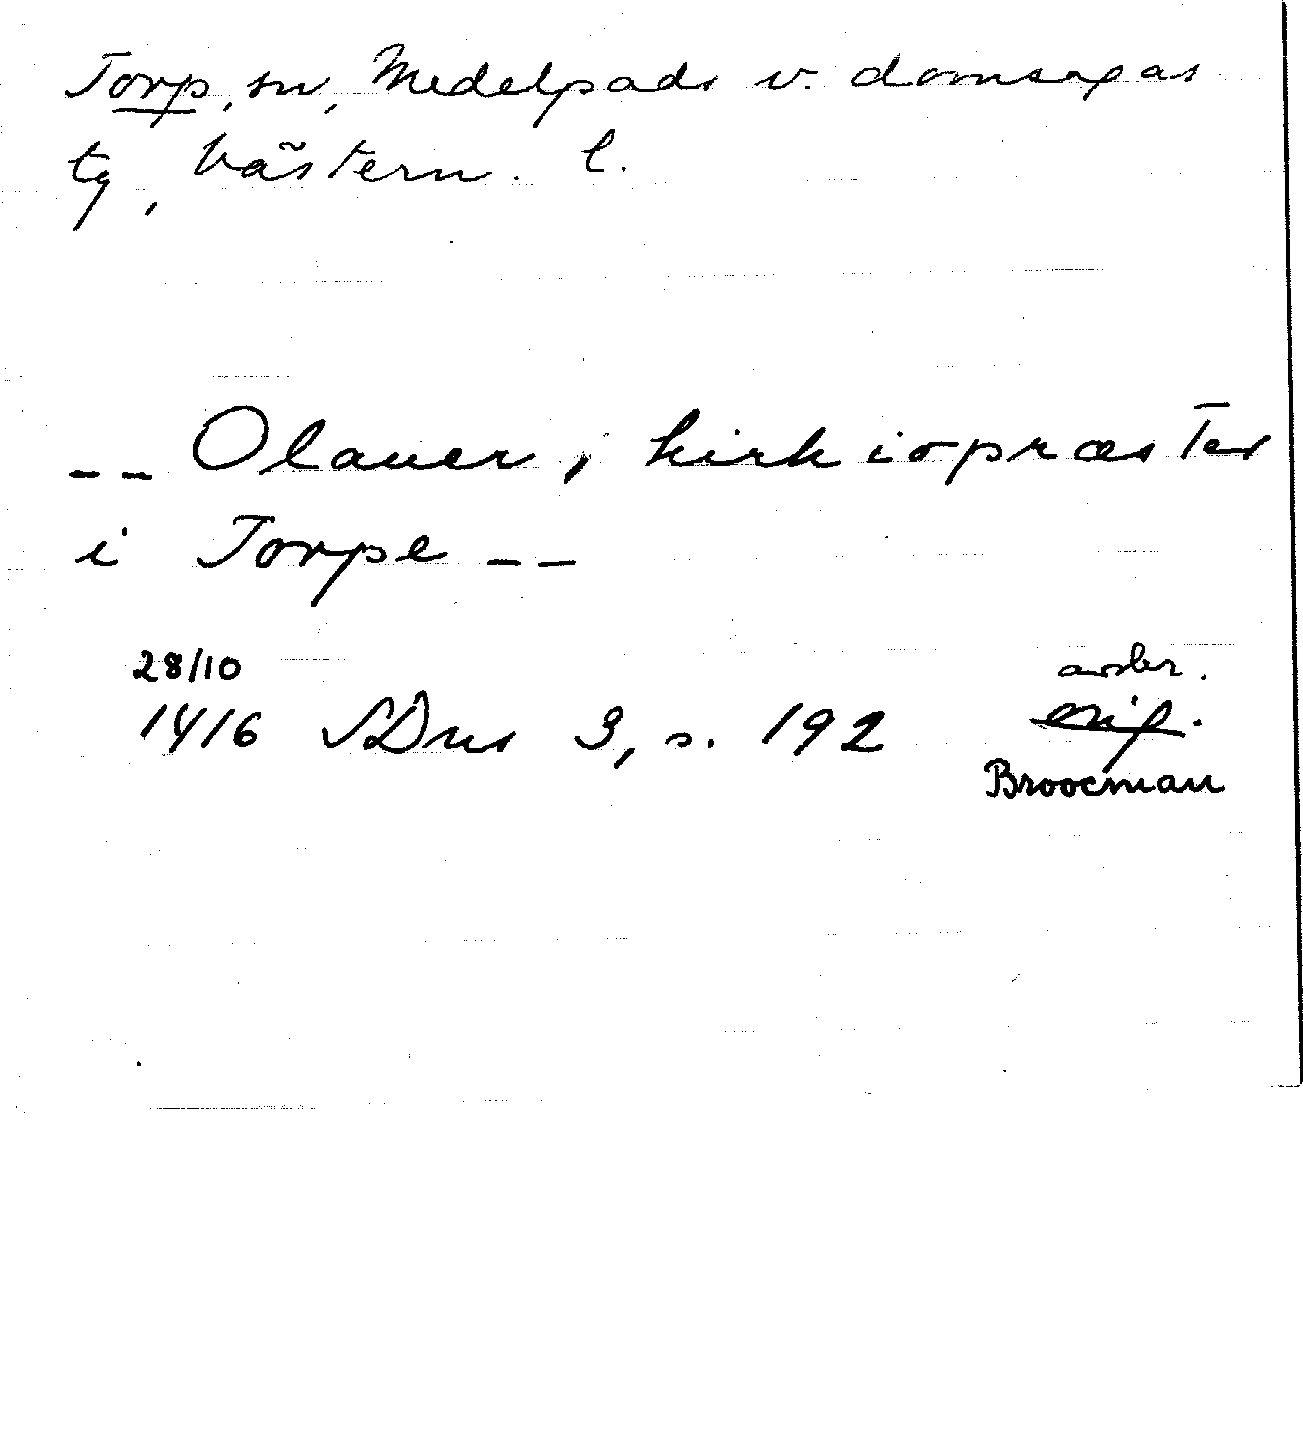 Torp, sn, Medelpads v. domsagas
tg, Västern. l.
-- Olauer, kirkiopræster
i Torpe --
28/10
avskr.
1416 SDns 3, s. 192 orig.
Broocman